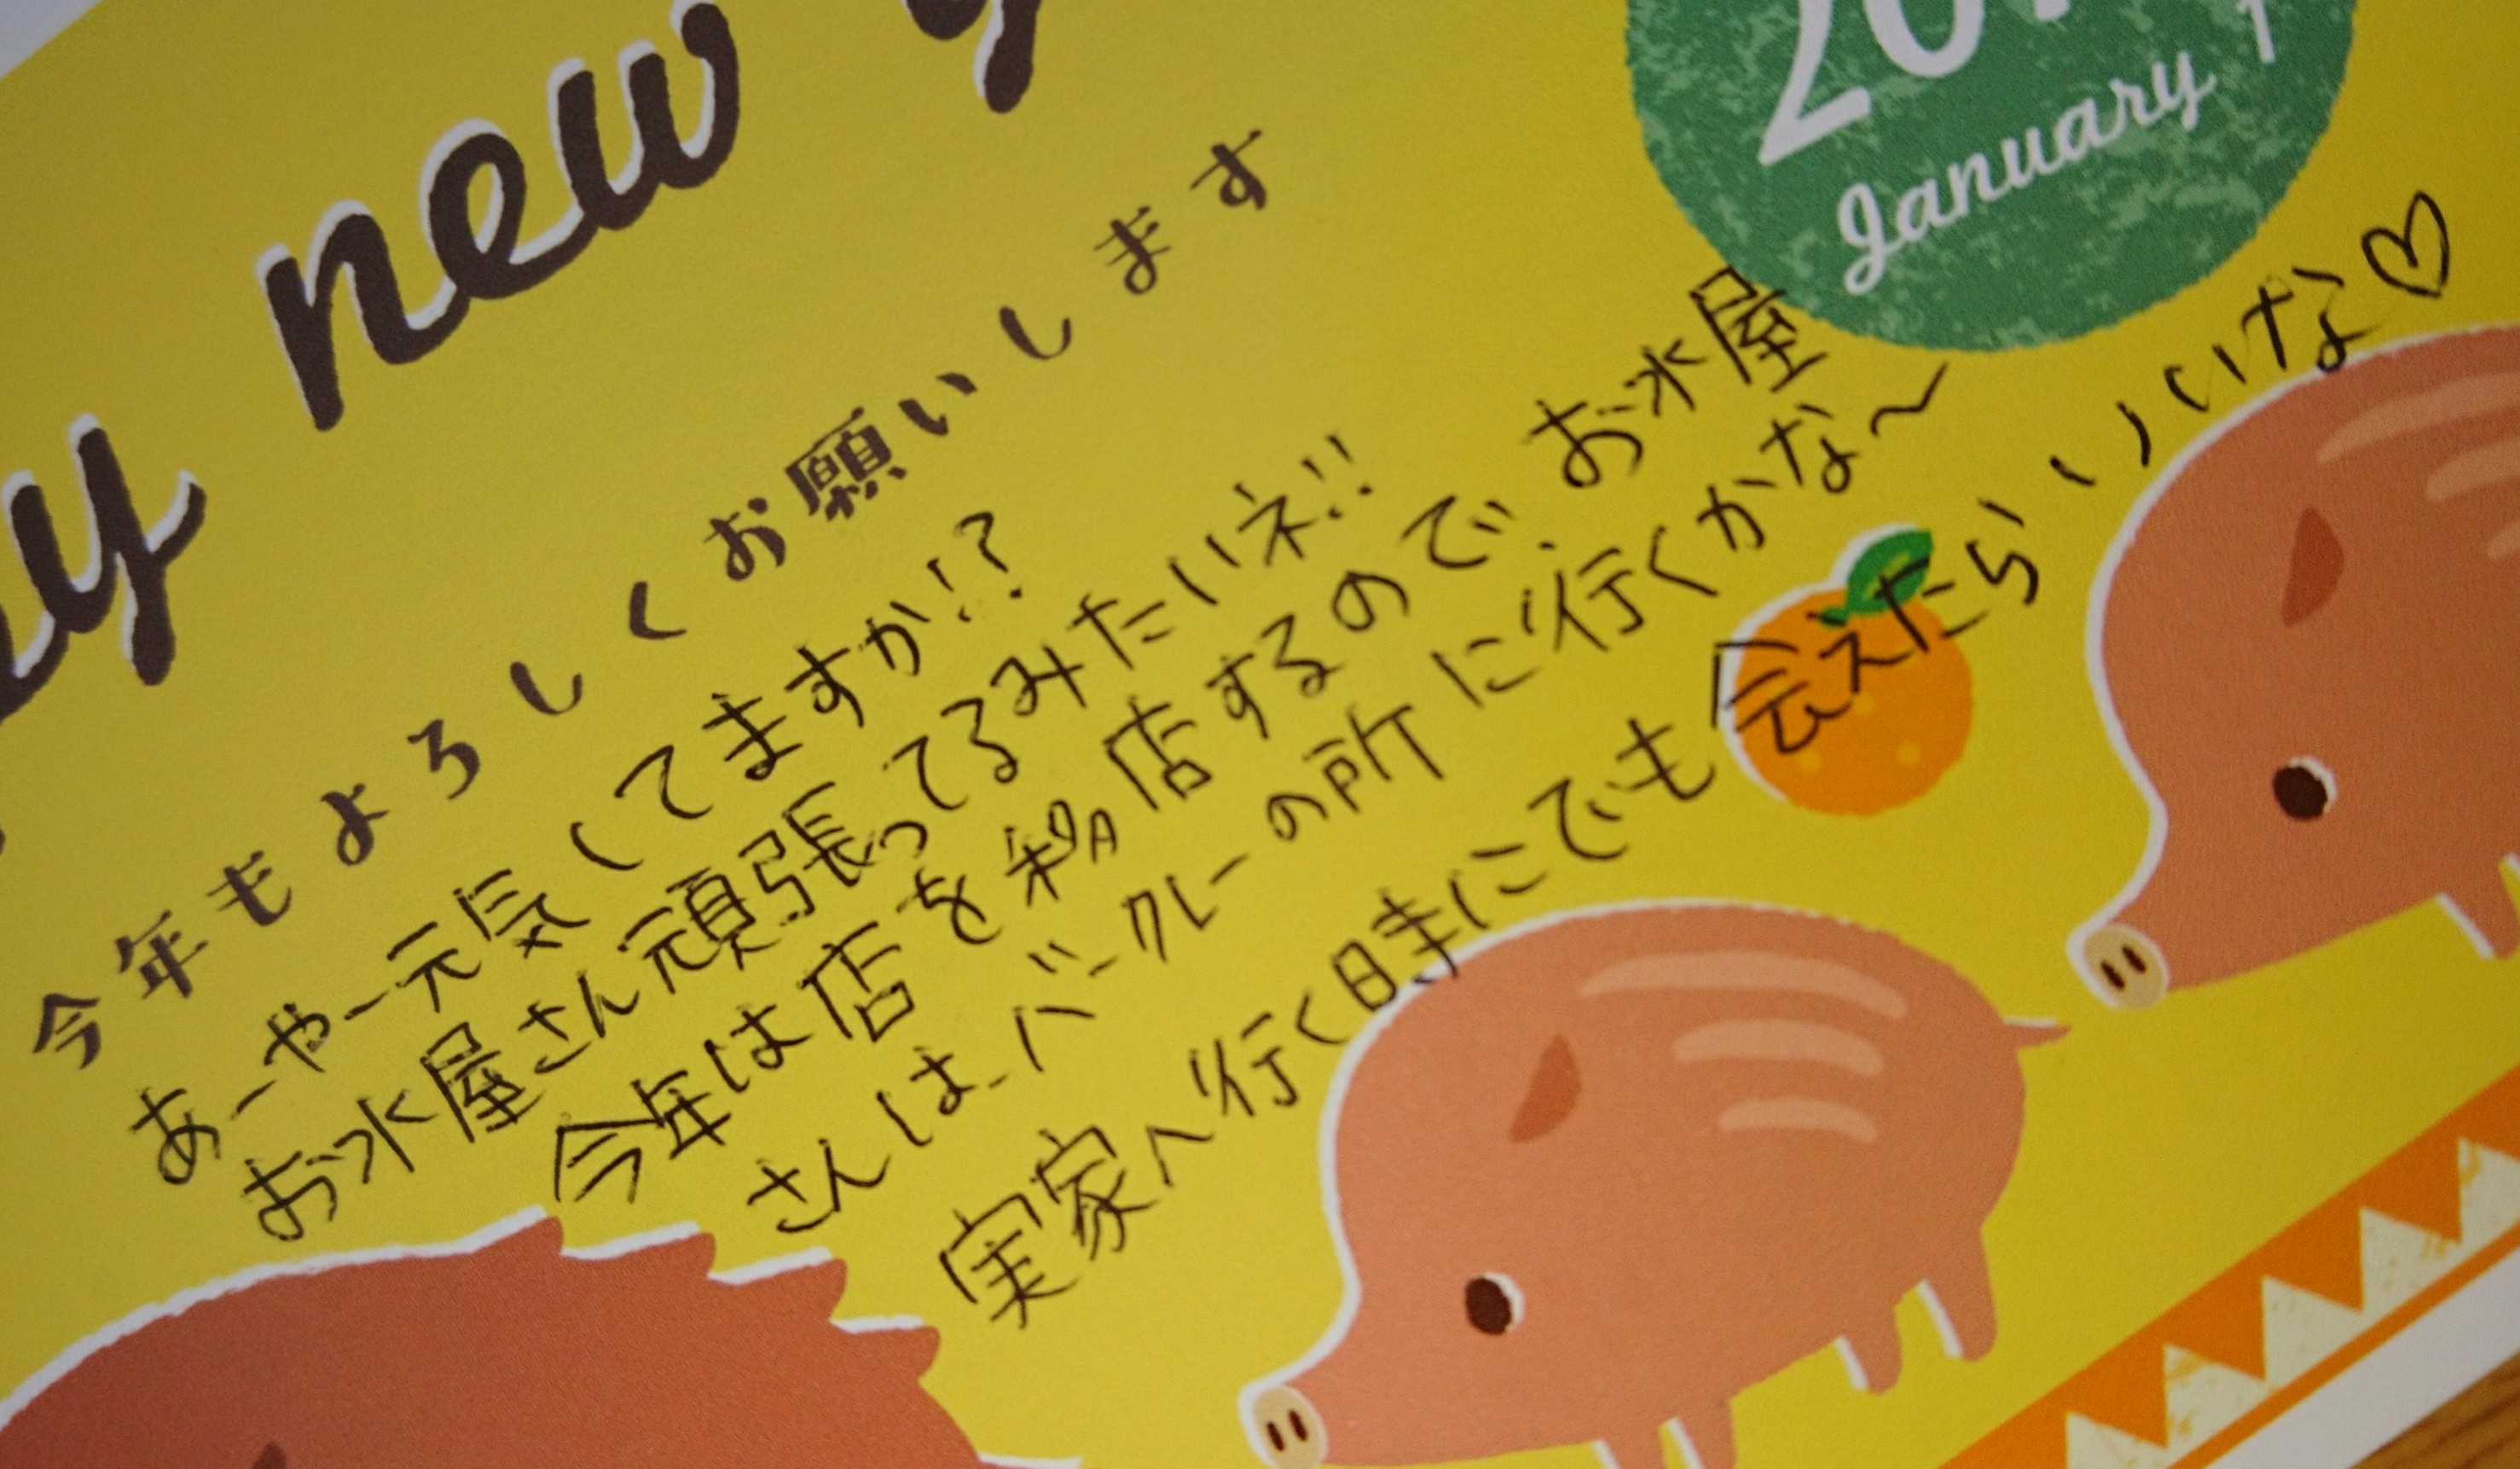 new
20
January 1
今年もよろしくお願いします
あーやー元気してますか!?
お水屋さん頑張ってるみたいネ!!
今年は店を移店するので、お水屋
さんは、バークレーの所に行くかな〜
実家へ行く時にでも会えたらいいな♡